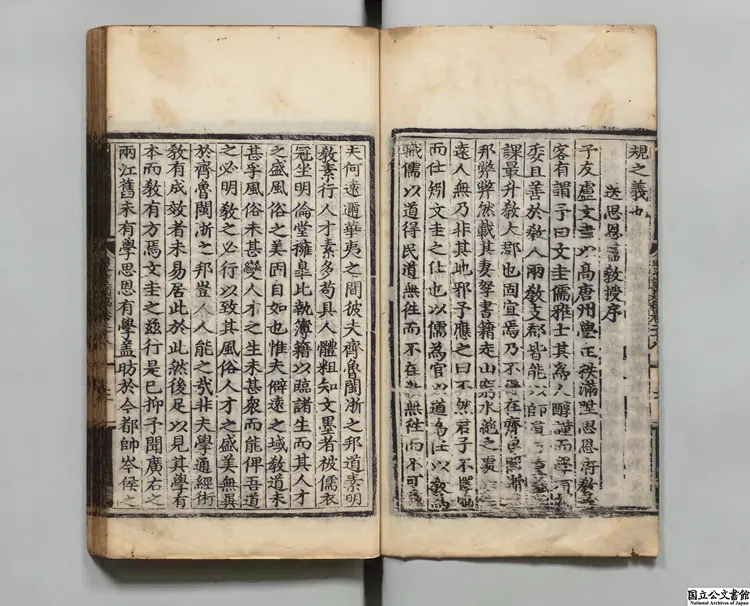 規之義也
送思恩盧教授序
予友盧文圭以高唐州學正秩滿陞思恩府教授
客有謂予曰文圭儒雅士其為人醇謹而
委且善於教人兩教支郡皆能以師道
課最升教大郡也固宜焉乃不得在齊魯閩浙
那弊弊然載其妻孥書籍走山窮水絶之
遠人無乃非其地邪子應之曰不然君子不
而仕矧文圭之仕也以儒為官以道為任以
職儒以道得民道無往而不在無往而不可
夫何遠邇華夷之間彼夫齊魯閩浙之邦道素明
教素行人才素多苟具人體粗知文墨者被儒衣
冠坐明倫堂擁皐比執簿籍以臨諸生而其人才
之盛風俗之美固自如也惟夫僻遠之域教道未
甚孚風俗未甚變人才之生未甚衆而能俾吾道
之必明教之必行以致其風俗人才之盛美無異
於齊魯閩浙之邦豈人人能之哉非夫學通經術
教有成效者未易居此於此然後足以見其學有
本而教有方焉文圭之兹行是已抑予聞廣右之
兩江舊未有學思恩有學盖昉於今都帥岑侯之
国立公文書館
National Archives of Japan